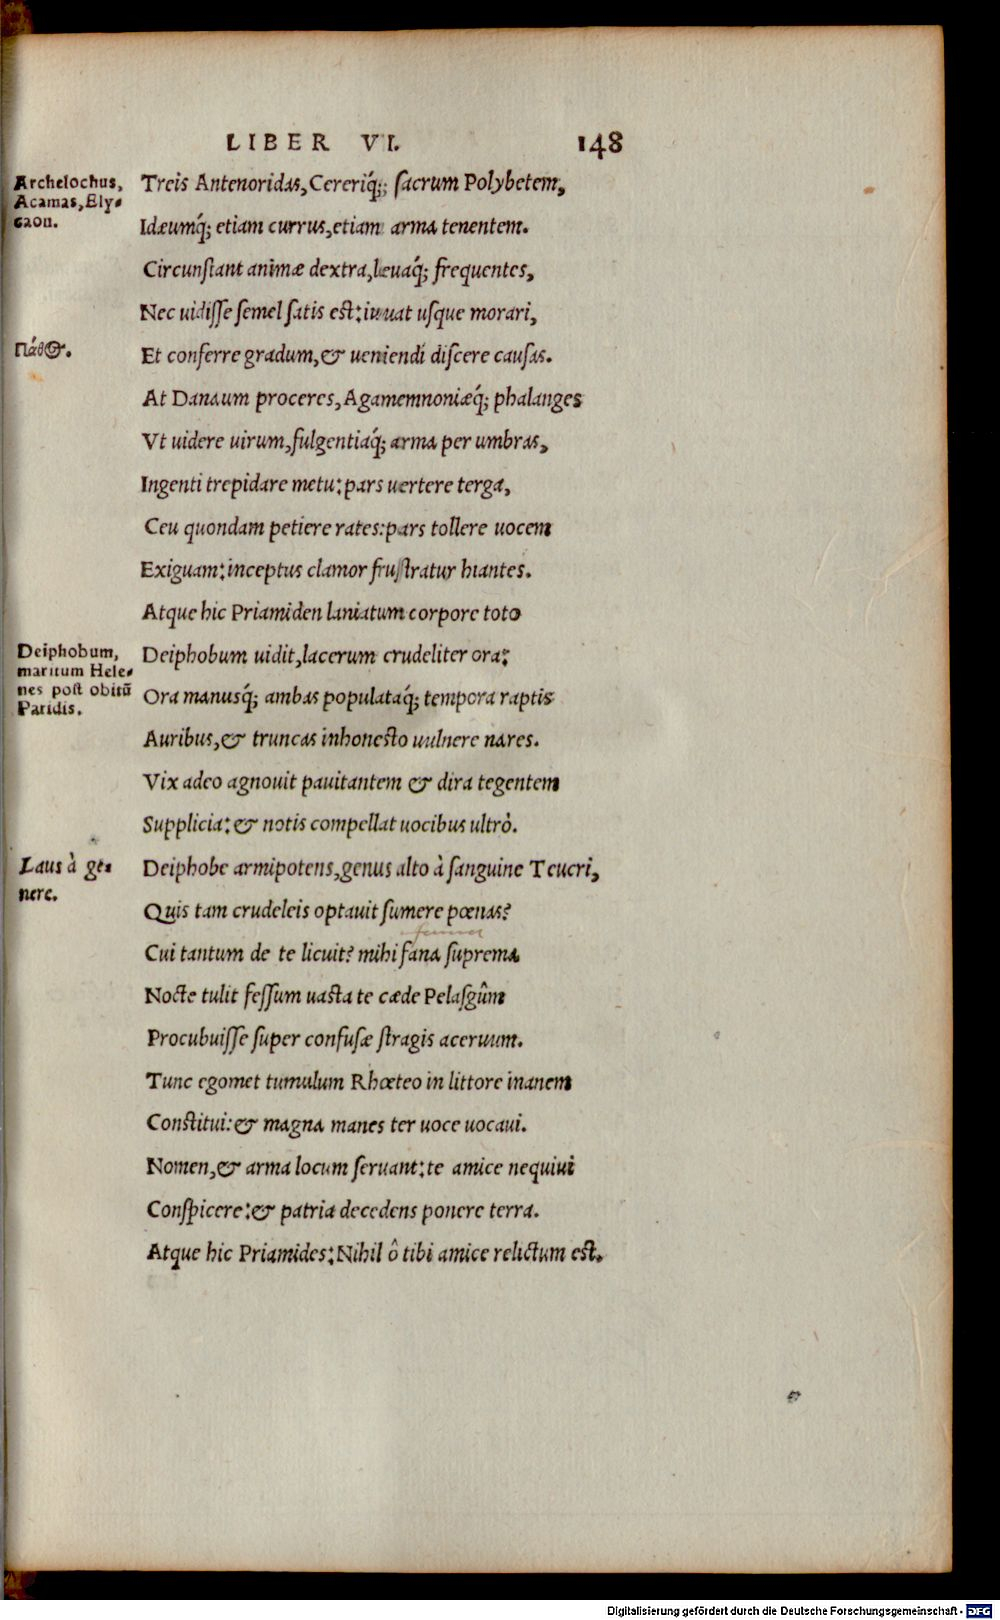 LIBER VI. 148
Archelochus,
Acamas, Ely-
caon.
Treis Antenoridas, Cereriq́;; sacrum Polybetem,
Idæumq́; etiam currus, etiam arma tenentem.
Circunstant animæ dextra, leuaq́; frequentes,
Nec uidisse semel satis est: iuuat usque morari,
Πάθος.
Et conferre gradum, & ueniendi discere causas.
At Danaum proceres, Agamemnoniæq́; phalanges
Vt uidere uirum, fulgentiaq́; arma per umbras,
Ingenti trepidare metu: pars uertere terga,
Ceu quondam petiere rates: pars tollere uocem
Exiguam: inceptus clamor frustratur hiantes.
Atque hic Priamiden laniatum corpore toto
Deiphobum,
maritum Hele-
nes post obitū
Paridis.
Deiphobum uidit, lacerum crudeliter ora:
Ora manusq́; ambas populataq́; tempora raptis
Auribus, & truncas inhonesto uulnere nares.
Vix adeo agnouit pauitantem & dira tegentem
Supplicia: & notis compellat uocibus ultrò.
Laus à ge-
nere.
Deiphobe armipotens, genus alto à sanguine Teucri,
Quis tam crudeleis optauit sumere pœnas?
Cui tantum de te licuit? mihi fana suprema
Nocte tulit fessum uasta te cæde Pelasgûm
Procubuisse super confusæ stragis aceruum.
Tunc egomet tumulum Rhœteo in littore inanem
Constitui: & magna manes ter uoce uocaui.
Nomen, & arma locum seruant: te amice nequiui
Conspicere: & patria decedens ponere terra.
Atque hic Priamides: Nihil ô tibi amice relictum est.
Digitalisierung gefördert durch die Deutsche Forschungsgemeinschaft - DFG